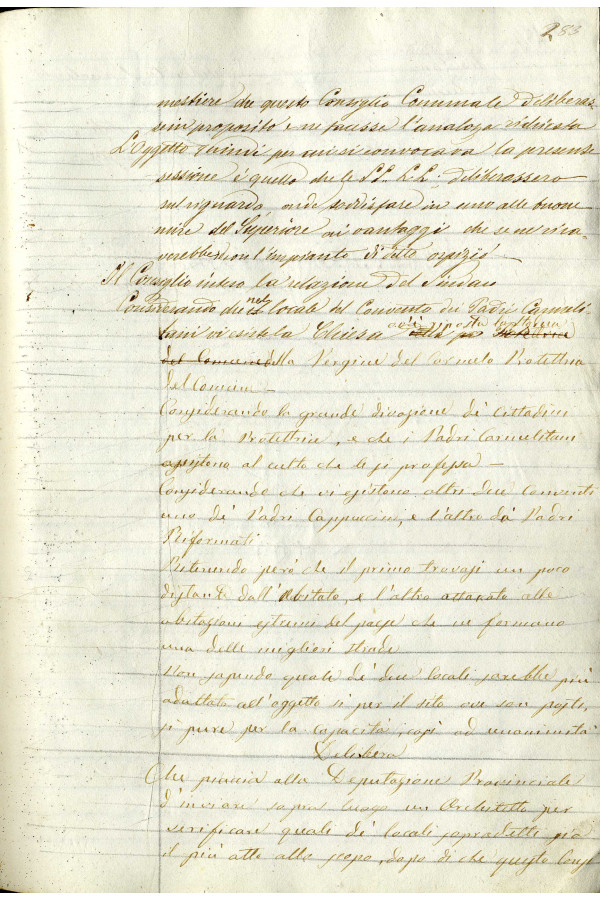 283
mestiere che questo Consiglio Comunale deliberas=
se in proposito e ne facesse l'analoga richiesta
L'Oggetto quindi per cui si convocava la presente
sessione è quello che le LL. LL. deliberassero
sul riguardo onde soddisfare in uno alle buone
mire del Superiore ai vantaggi che se ne rica=
verebbero con l'impianto di detto ospizio
Il Consiglio inteso la relazione del Sindaco
Considerando che nel locale del Convento dei Padri Carmeli=
tani vi esiste la Chiesa ove posta la
del Comune della Vergine del Carmelo Protettrice
del Comune=
Considerando la grande divozione de' cittadini
per la Protettrice, e che i Padri Carmelitani
al culto che le si professa—
Considerando che vi esistono altri due conventi
uno de' Padri Cappuccini, e l'altro dei Padri
Riformati
Ritenendo però che il primo trovasi un poco
distante dall'Abitato, e l'altro attaccato alle
abitazioni estremi del paese che ne formano
una delle migliori strade
Non sapendo quale de' due locali sarebbe più
adattato all'oggetto si per il sito ove son posti,
si pure per la capacità, così ad unanimità
Delibera
Che piaccia alla Deputazione Provinciale
d'inviare sopra luogo un Architetto per
verificare quali de' locali sopradetti sia
il più atto allo scopo, dopo di che questo Consi